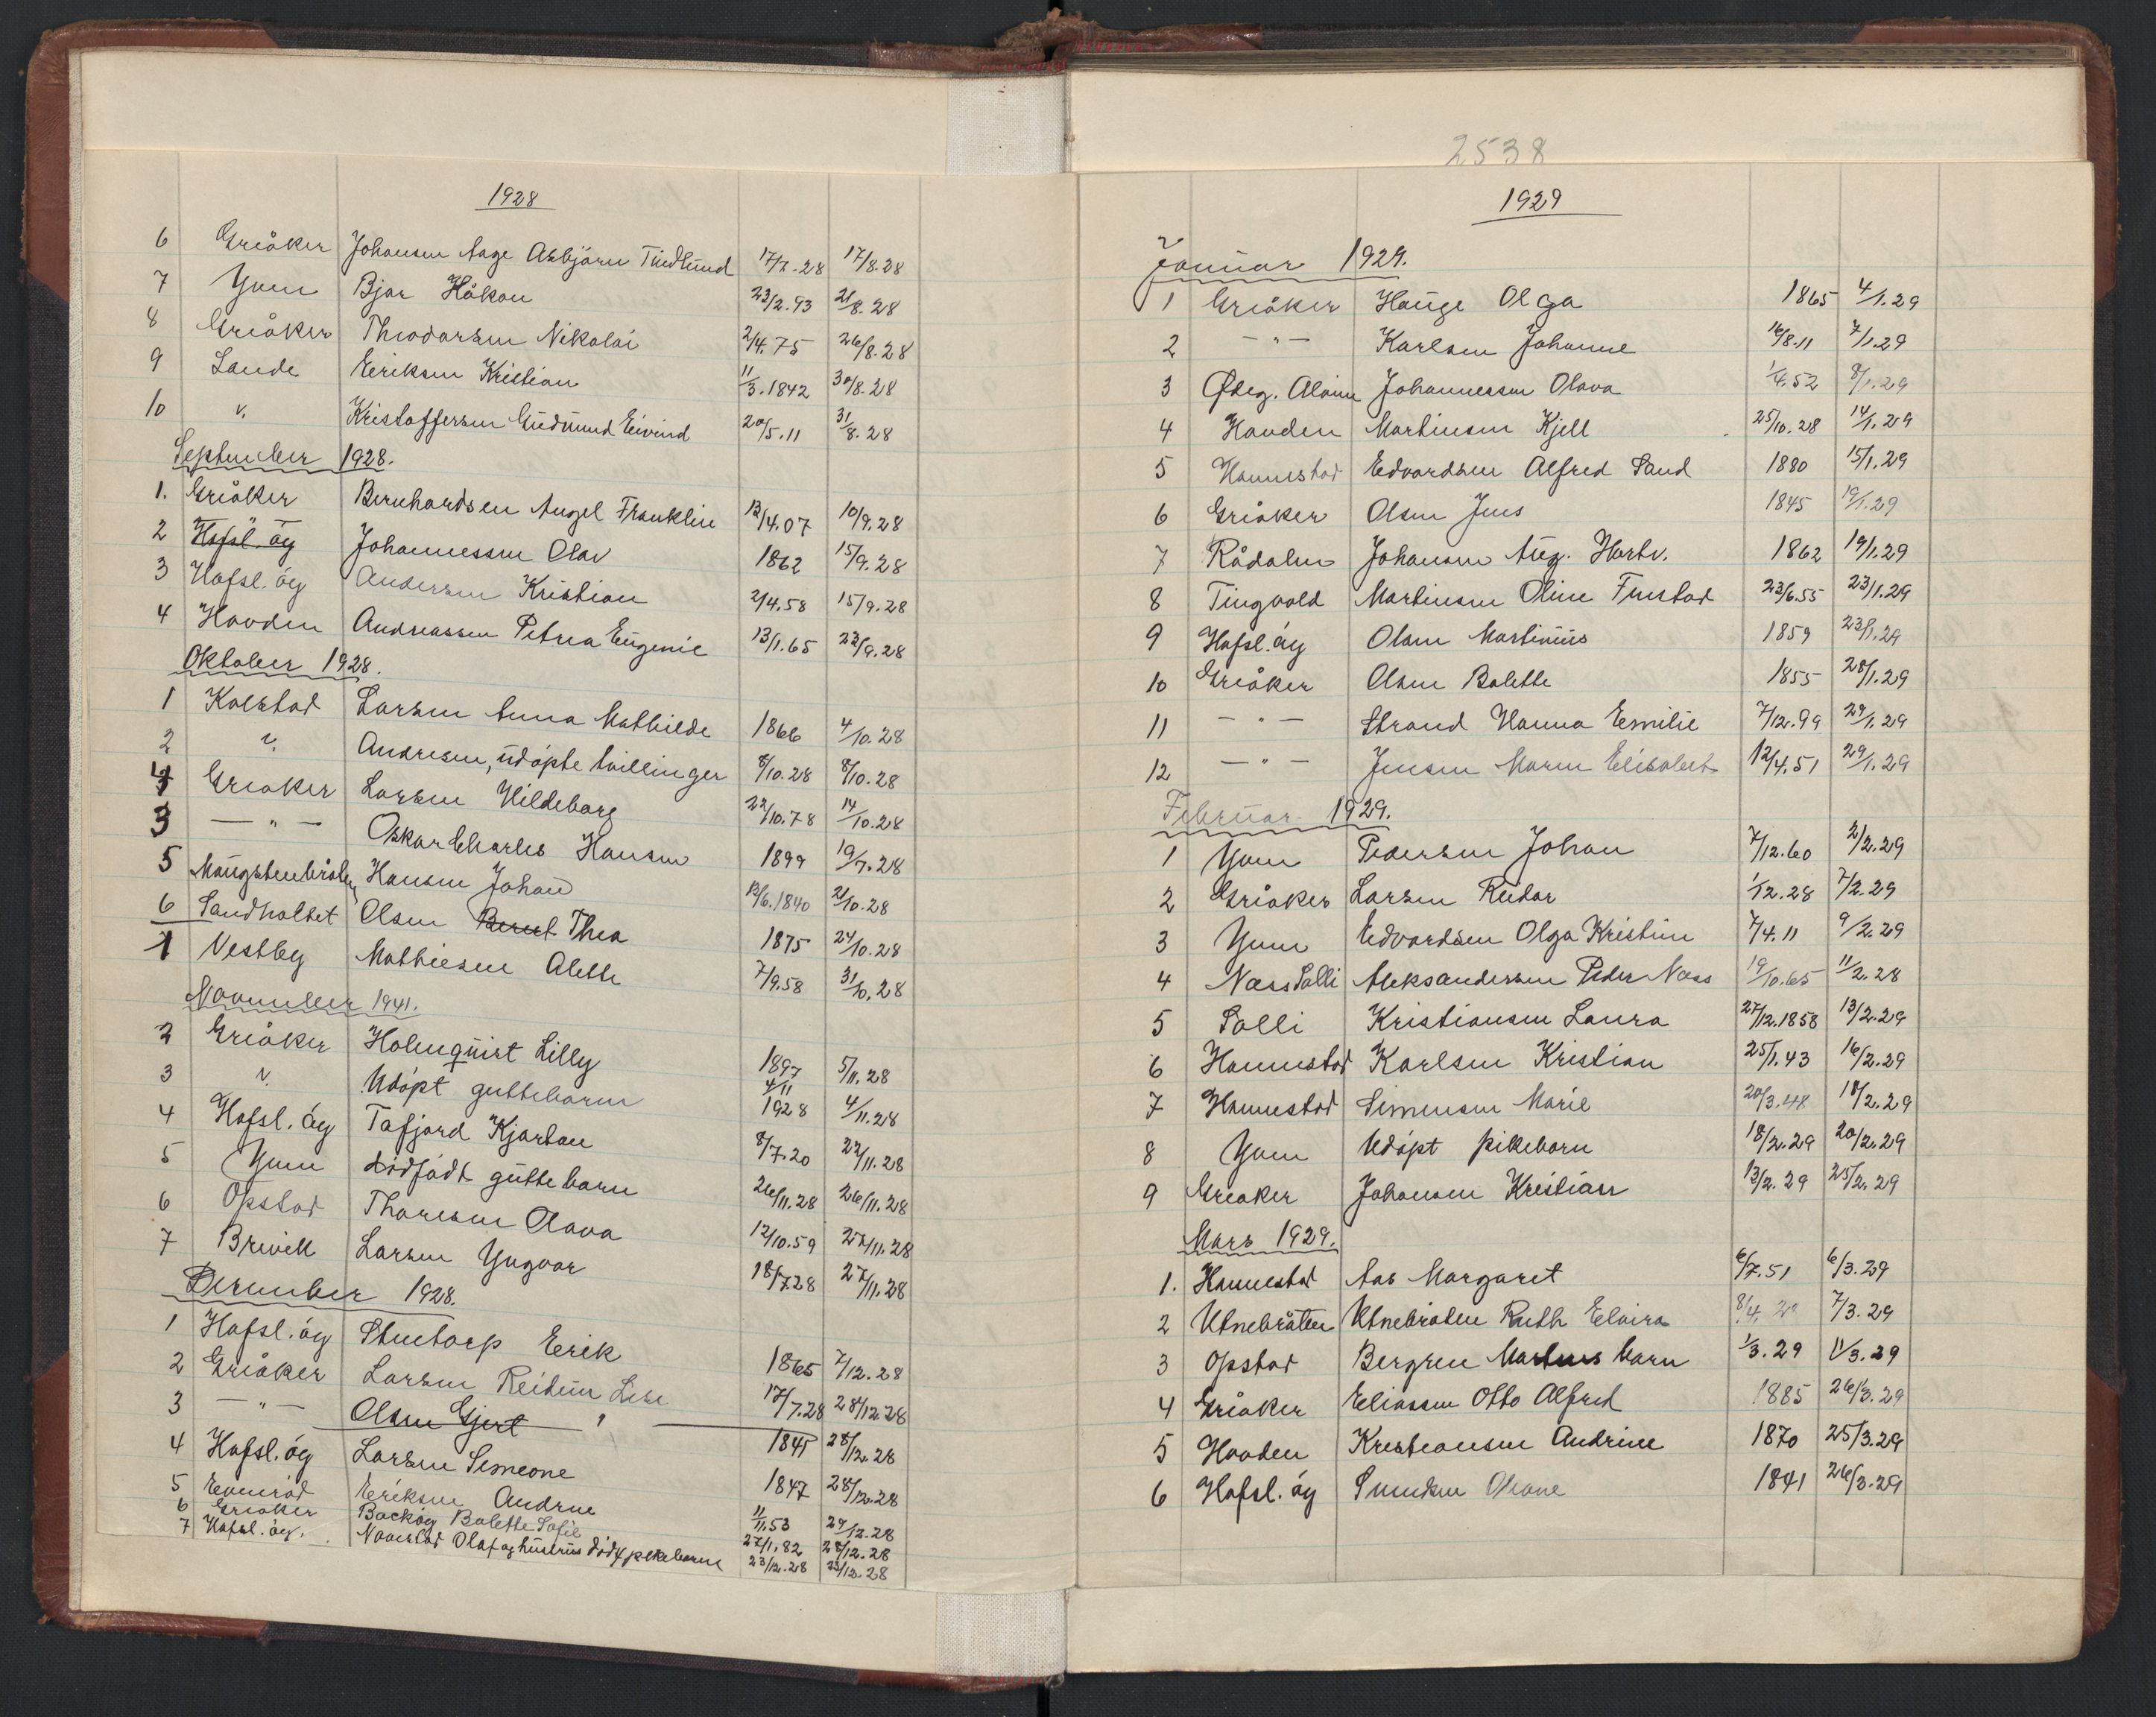 1928
6 Greåker Johansen Aage Asbjörn Tindlund 17/7.28 17/8.28
7 Yven Bjar Håkon 23/2.93 21/8.28
8 Greåker Theodorsen Nikolai 2/4.75 26/8.28
9 Lande Eriksen Kristian 11/3.1842 30/8.28
10 v. Kristoffersen Gudmund Eivind 20/5.11 31/8.28
September 1928.
1. Greåker Bernhardsen Angel Franklin 12/4.07 10/9.28
2 Hafsl. óg Johannessen Olav 1862 15/9.28
3 Hafsl. óg Andersen Kristian 2/4.58 15/9.28
4 Hovden Andreassen Petrea Eugenie 13/1.65 23/9.28
Oktober 1928.
1 Kolstad Larsen Anna Mathilde 1866 4/10.28
2 v. Andresen, udöpte tvillinger 8/10.28 8/10.28
4 Greaker Larsen Hildeborg 22/10.78 14/10.28
3 — " — Oskar Charles Hansen 1899 19/7.28
5 Maugstenbråten Hansen Johan 12/6.1840 21/10.28
6 Sandholtet Olsen Berent Thea 1875 24/10.28
1 Vestby Mathiesen Alette 7/9.58 31/10.28
November 1941.
2 Greåker Holmquist Lilly 1897 5/11.28
3 v. Udöpt guttebarn 4/11 1928 4/11.28
4 Hafsl. óg Tafjord Kjartan 8/7.20 22/11.28
5 Yven dödfödt guttebarn 26/11.28 26/11.28
6 Opstad Thoresen Olava 12/10.59 27/11.28
7 Brevik Larsen Yngvar 18/7.28 27/11.28
Desember 1928.
1 Hafsl. óg Stentorp Erik 1865 7/12.28
2 Greåker Larsen Reidun Lise 17/7.28 28/12.28
3 — " — Olsen Gjert 1841 28/12.28
4 Hafsl. óg Larsen Simeone 1847 28/12.28
5 Evenröd Eriksen Andrine 11/11.53 29/12.28
6 Greåker Backög Bolette Sofie 27/1.82 28/12.28
7 Hafsl. óg. Navestad Olaf og hustrus dödf pikebarn 23/12.28 23/12.28
2538
1929
Januar 1929.
1 Greåker Hauge Olga 1865 4/1.29
2 — " — Karlsen Johanne 16/8.11 7/1.29
3 Ødeg. Alvim Johannessen Olava 1/4.52 8/1.29
4 Hovden Martinsen Kjell 25/10.28 14/1.29
5 Hannestad Edvardsen Alfred Sand 1880 15/1.29
6 Greåker Olsen Jens 1845 19/1.29
7 Rådalen Johansen Aug. Hartv. 1862 19/1.29
8 Tingvold Martinsen Oline Finstad 23/6.55 23/1.29
9 Hafsl. óg Olsen Martinius 1859 23/1.29
10 Greåker Olsen Bolette 1855 28/1.29
11 — " — Strand Hanna Emilie 7/12.99 29/1.29
12 — " — Jensen Maren Elisabet 12/4.51 29/1.29
Februar 1929.
1 Yven Pedersen Johan 7/12.60 2/2.29
2 Greåker Larsen Reidar 1/12.28 7/2.29
3 Yven Edvardsen Olga Kristine 7/4.11 9/2.29
4 Næss Solli Aleksandersen Peder Næss 19/10.65 11/2.28
5 Solli Kristiansen Laura 27/12.1858 13/2.29
6 Hannestad Karlsen Kristian 25/1.43 16/2.29
7 Hannestad Simensen Marie 20/3.48 18/2.29
8 Yven Udöpt pikebarn 18/2.29 20/2.29
9 Greaker Johansen Kristian 13/2.29 25/2.29
Mars 1929.
1. Hannestad Aas Margaret 6/7.51 6/3.29
2 Utnebråten Utnebråten Ruth Elvira 8/4. 7/3.29
3 Opstad Bergren Martins barn 1/3.29 11/3.29
4 Greåker Eliassen Otto Alfred 1885 26/3.29
5 Hovden Kristiansen Andrine 1870 25/3.29
6 Hafsl. óg Svendsen Oliane 1841 26/3.29